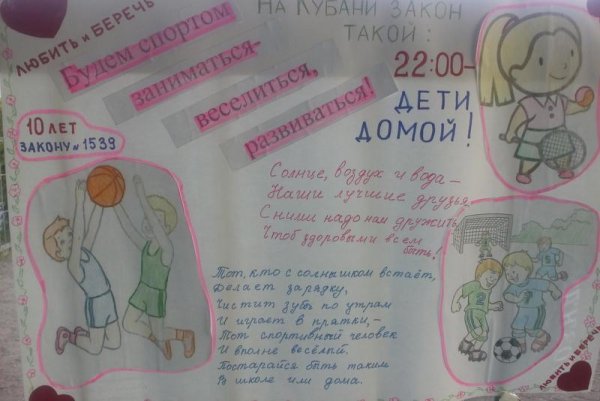 ЛЮБИТЬ и БЕРЕЧЬ
Будем спортом
заниматься-
веселиться,
развиваться!
НА КУБАНИ ЗАКОН
ТАКОЙ:
22:00-
ДЕТИ
ДОМОЙ!
10 ЛЕТ
ЗАКОНУ № 1539
Солнце, воздух и вода –
Наши лучшие друзья.
С ними надо нам дружить,
Чтоб здоровыми всем
быть!
Тот, кто с солнышком встаёт,
Делает зарядку,
Чистит зубы по утрам
И играет в прятки, –
Тот спортивный человек
И вполне весёлый.
Постарайся быть таким
В школе или дома.
ЛЮБИТЬ и БЕРЕЧЬ